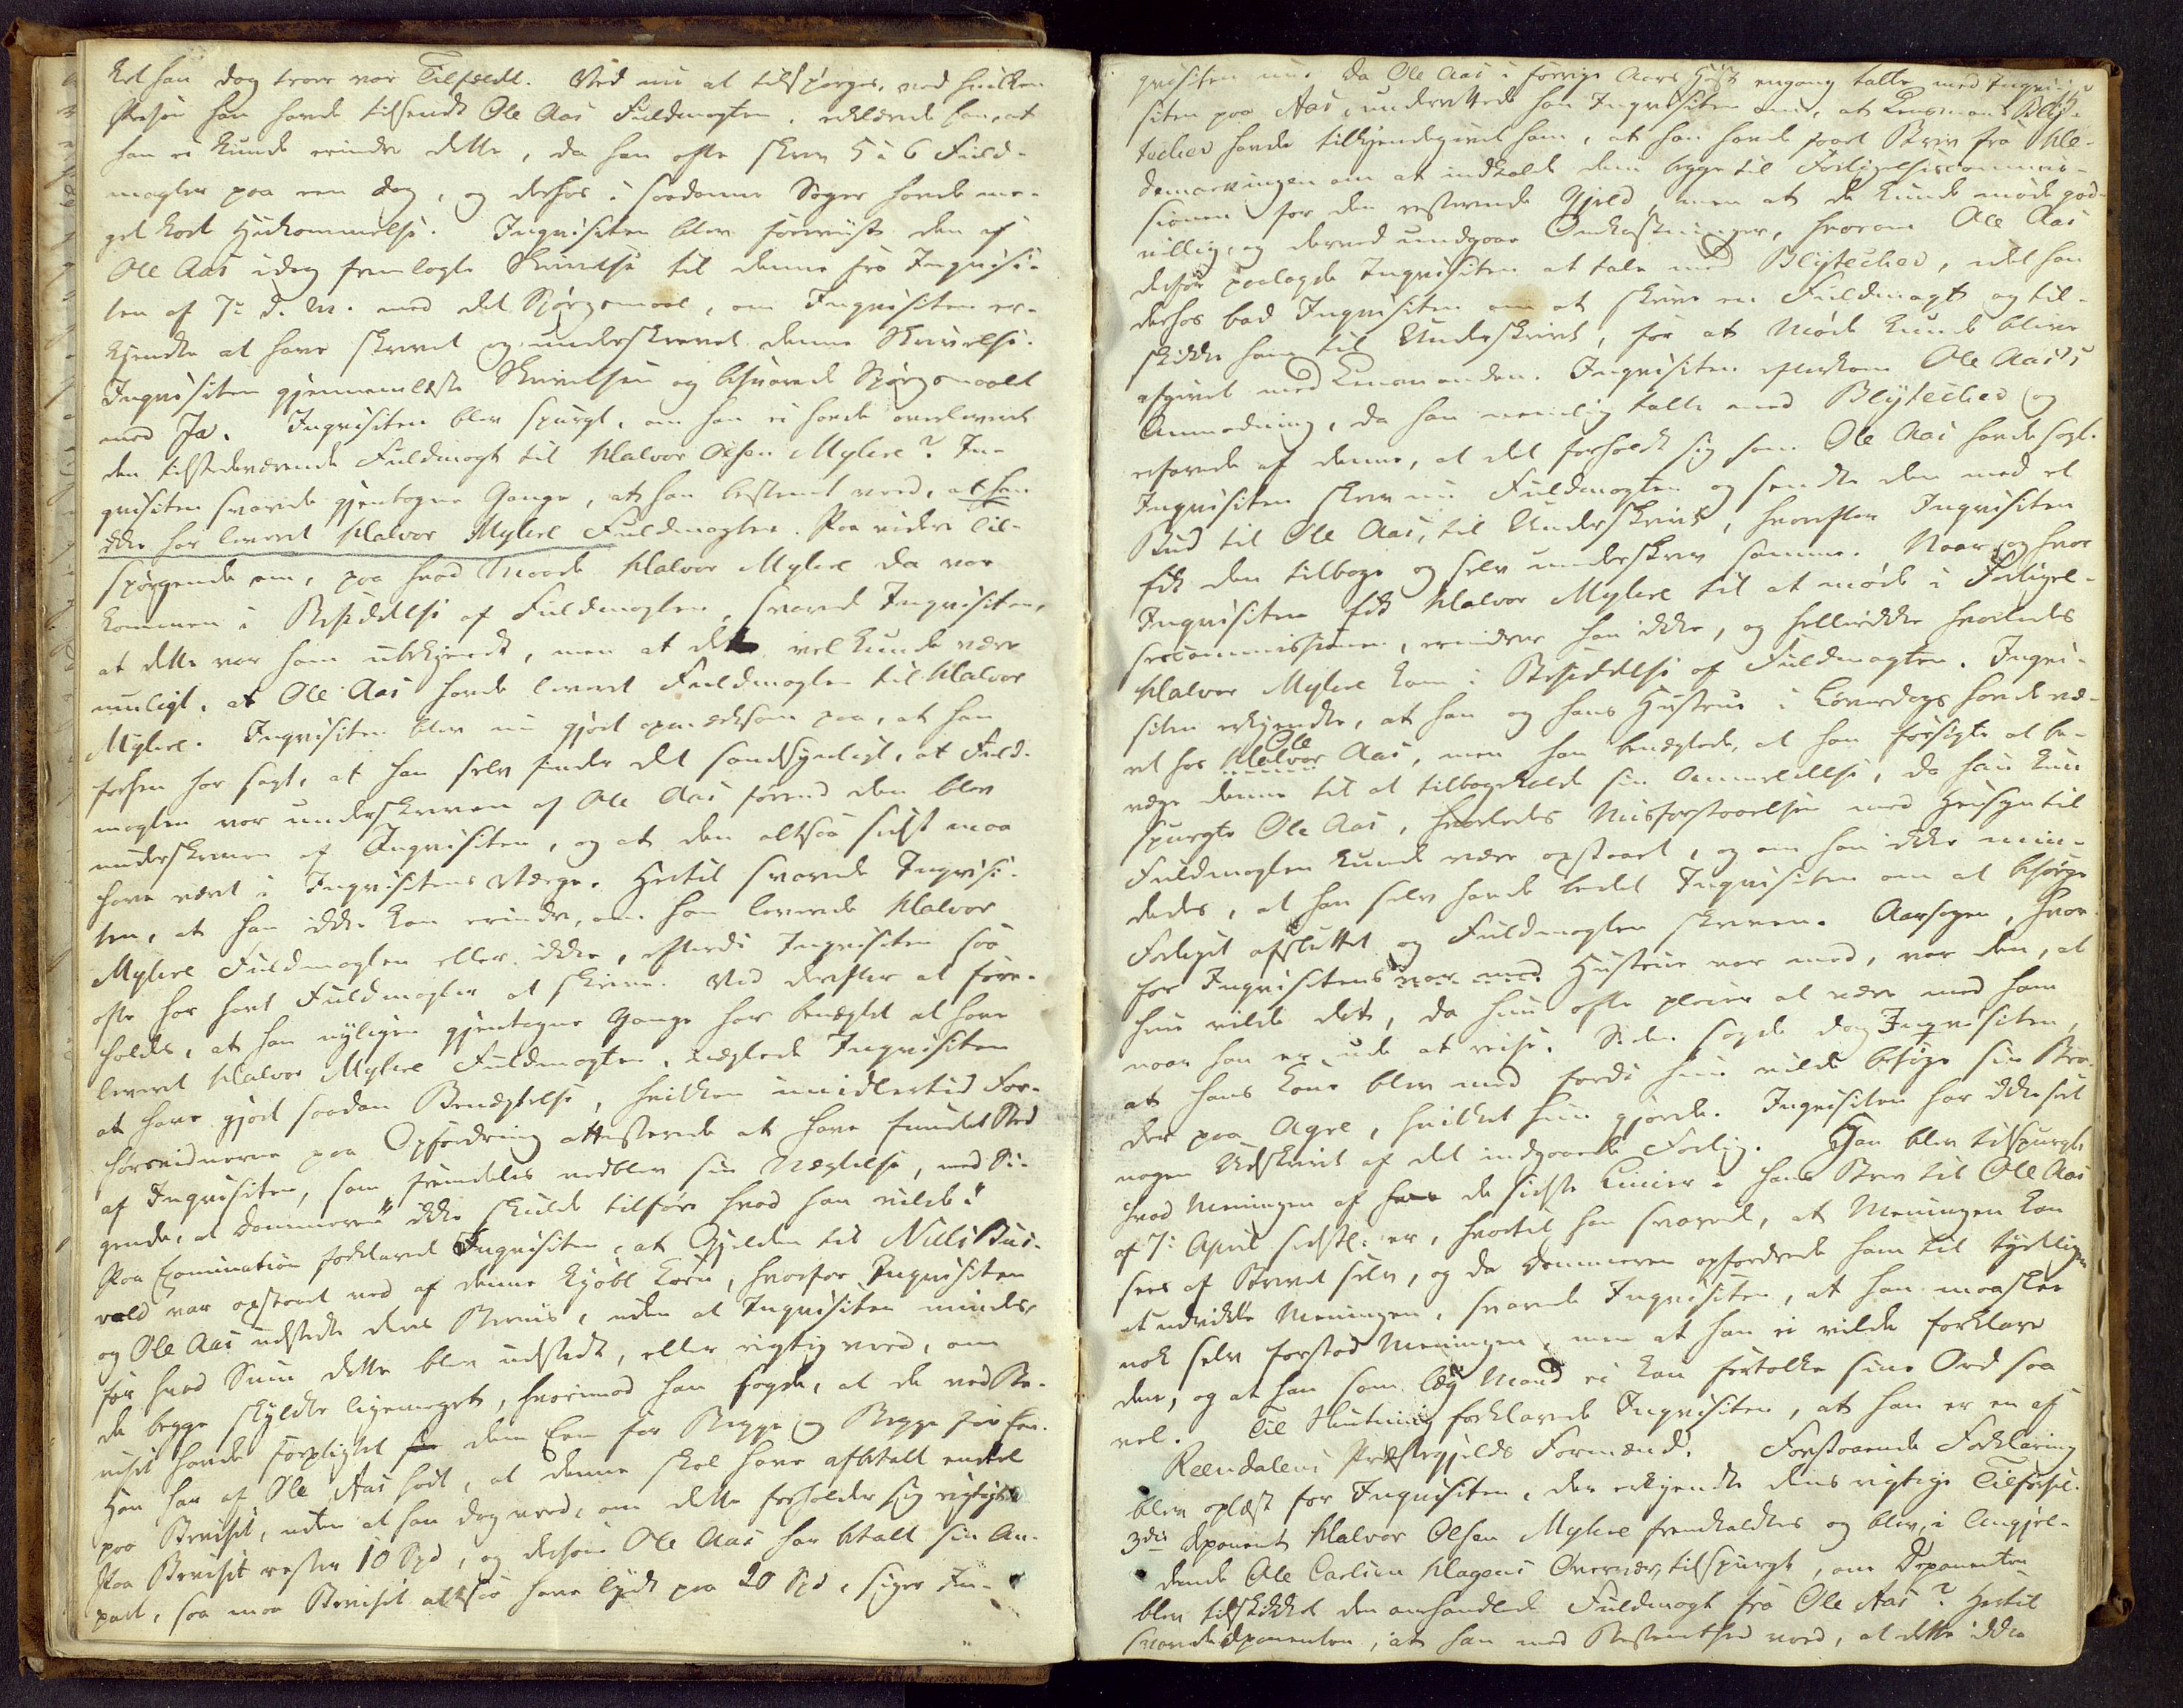 ket han dog troer var Tilfældet. Ved nu at tilspørges, ved hvilken
Person han havde tilsendt Ole Aas Fuldmagten, erklærede han, at
han ei kunde erindre dette, da han ofte skrev 5 à 6 Fuld-
magter paa een Dag, og derhos i saadanne Sager havde me-
get kort Hukommelse. Inqvisiten blev foreviist den af
Ole Aas idag fremlagte Skrivelse til denne fra Inqvisi-
ten af 7de d. M. med det Spørgsmaal, om Inqvisiten er-
kjendte at have skrevet og underskrevet denne Skrivelse.
Inqvisiten gjennemlæste Skrivelsen og besvarede Spørgsmaalet
med Ja. Inqvisiten blev spurgt, om han ei havde overleveret
den tilstedeværende Fuldmagt til Halvor Olsen Myhre? In-
qvisiten svarede gjentagne Gange, at han bestemt veed, at han
ikke har leveret Halvor Myhre Fuldmagten. Paa videre Til-
spørgende om, paa hvad Maade Halvor Myhre da var
kommen i Besiddelse af Fuldmagten, svarede Inqvisiten,
at dette var ham ubekjendt, men at det vel kunde være
muligt, at Ole Aas havde leveret Fuldmagten til Halvor
Myhre. Inqvisiten blev nu gjort opmærksom paa, at han
forhen har sagt, at han selv finder det sandsynligt, at Fuld-
magten var underskreven af Ole Aas førend den blev
underskreven af Inqvisiten, og at den altsaa sidst maa
have været i Inqvisitens Værge. Hertil svarede Inqvisi-
ten, at han ikke kan erindre, om han leverede Halvor
Myhre Fuldmagten eller ikke, efterdi Inqvisiten saa
ofte har havt Fuldmagter at skrive. Ved derefter at fore-
holdes, at han nyligen gjentagne Gange har benægtet at have
leveret Halvor Myhre Fuldmagten, nægtede Inqvisiten
at have gjort saadan Benægtelse, hvilken imidlertid For-
hørsvidnerne paa Opfordring attesterede at have fundet Sted
af Inqvisiten, som fremdeles vedblev sin Nægtelse, med Si-
gende, at Dommeren "ikke skulde tilføre hvad han vilde."
Paa Examination forklarede Inqvisiten, at Gjelden til Niels Bus-
vold var opstaaet ved af denne kjøbt Korn, hvorfor Inqvisiten
og Ole Aas udstedte deres Beviis, uden at Inqvisiten mindes
for hvad Sum dette blev udstedt, eller rigtig veed, om
de begge skyldte ligemeget, hvorimod han sagde, at de ved Be-
viset havde forpligtet dem Een for Begge og Begge for Een.
Han har af Ole Aas hørt, at denne skal have afbetalt endeel
paa Beviset, uden at han dog veed, om dette forholder sig rigtigt.
Paa Beviset rester 10 Spd, og dersom Ole Aas har betalt sin An-
part, saa maa Beviset altsaa have lydt paa 20 Spd, siger In-
qvisiten nu. Da Ole Aas i forrige Aars Høst engang talte med Inqvi-
siten paa Aas, underrettede han Inqvisiten om, at Lensmand Blÿ-
techer havde tilkjendegivet ham, at han havde faaet Brev fra Hle-
demarkingen om at indkalde dem begge til Forligelsescommis-
sionen for den resterende Gjeld, men at de kunde møde god-
villig, og derved undgaae Omkostninger, hvorom Ole Aas
derfor paalagde Inqvisiten at tale med Blÿtecher, idet han
derhos bad Inqvisiten om at skrive en Fuldmagt og til-
skikke ham til Underskrivt, for at Møde kunde blive
afgivet med Lensmanden. Inqvisiten efterkom Ole Aas's
Anmodning, da han nemlig talte med Blÿtecher og
erfarede af denne, at det forholdt sig som Ole Aas havde sagt.
Inqvisiten skrev nu Fuldmagten og sendte den med et
Bud til Ole Aas, til Underskrivt, hvorefter Inqvisiten
fik den tilbage og selv underskrev samme. Naar og hvor
Inqvisiten fik Halvor Myhre til at møde i Forligel-
sescommissionen, erindrer han ikke, og hellerikke hvorledes
Halvor Myhre kom i Besiddelse af Fuldmagten. Inqvi-
siten erkjendte, at han og hans Hustrue i Løverdags havde væ-
ret hos Halvor Ole Aas, men han benægtede, at han forsøgte at be-
væge denne til at tilbageholde sin Anmeldelse, da han kun
spurgte Ole Aas, hvorledes Misforstaaelsen med Hensyn til
Fuldmagten kunde være opstaaet, og om han ikke min-
dedes, at han selv havde bedet Inqvisiten om at besørge
Forliget afsluttet og Fuldmagten skreven. Aarsagen, hvor-
for Inqvisitens var med Hustrue var med, var den, at
hun vilde det, da hun ofte pleier at være med ham
naar han er ude at reise. Siden sagde dog Inqvisiten,
at hans Kone blev med fordi hun vilde besøge sin Bro-
der paa Agre, hvilket hun gjorde. Inqvisiten har ikke seet
nogen Udskrivt af det indgaaede Forlig. Han blev tilspurgt
hvad Meningen af de sidste Linier i hans Brev til Ole Aas
af 7de April sidstl. er, hvortil han svarede, at Meningen kan
sees af Brevet selv, og da Dommeren opfordrede ham til tydeligere
at udvikle Meningen, svarede Inqvisiten, at han maaskee
nok selv forstod Meningen, men at han ei vilde forklare
den, og at han som læg Mand ei kan fortolke sine Ord saa
vel. Til Slutning forklarede Inqvisiten, at han er en af
Reendalens Præstegjelds Formænd. Forestaaende Forklaring
blev oplæst for Inqvisiten, der erkjendte dens rigtige Tilførsel.
3die Deponent Halvor Olsen Myhre fremkaldtes og blev, i Angjel-
dende Ole Carlsen Hagens Overvær, tilspurgt, om Deponenten
blev tilskikket den omhandlede Fuldmagt fra Ole Aas? Hertil
svarede Deponenten, at han med Bestemthed veed, at dette ikke